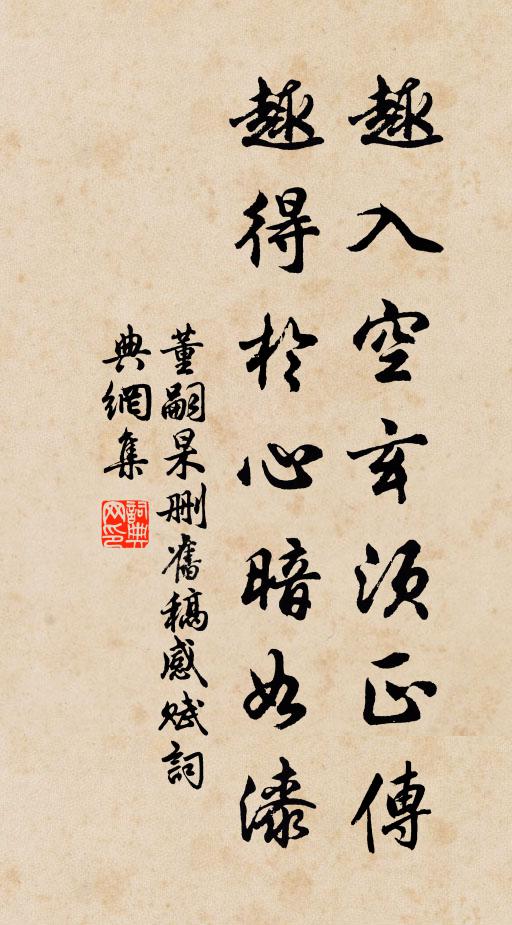 趣入空玄須正傳
趣得於心暗如漆
董嗣杲刪舊稿感賦詞
典網集
詞典網印